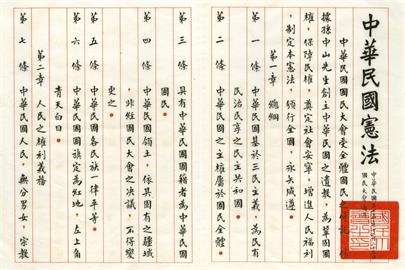 中華民國憲法
中華民國
國民大會
中華民國國民大會受全體國民之付託，依
據孫中山先生創立中華民國之遺教，為鞏固國
權，保障民權，奠定社會安寧，增進人民福利
，制定本憲法，頒行全國，永矢咸遵。
第一章 總綱
第一條 中華民國基於三民主義，為民有
民治民享之民主共和國。
第二條 中華民國之主權屬於國民全體。
第三條 具有中華民國國籍者為中華民國
國民。
第四條 中華民國領土，依其固有之疆域
，非經國民大會之決議，不得變
更之。
第五條 中華民國各民族一律平等。
第六條 中華民國國旗定為紅地，左上角
青天白日。
第二章 人民之權利義務
第七條 中華民國人民，無分男女，宗教